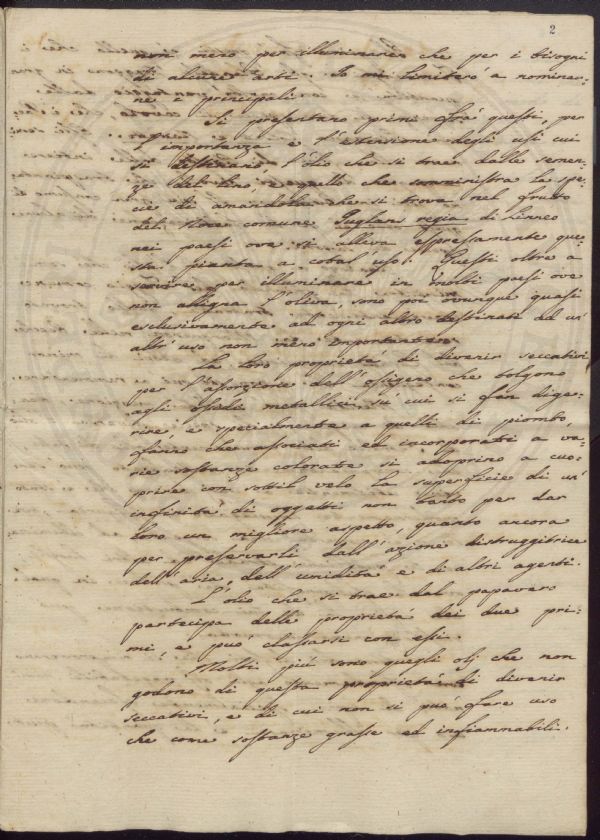 2
non meno per illuminare che per i bisogni
di alcune arti. Io mi limiterò a nominar=
ne i principali.
Si presentano primi frà questi, per
l'importanza e l'estensione degli usi cui
si destinano, l'olio che si trae dalle semen=
ze del lino e quello che somministra la spe=
cie di mandorla che si trova nel frutto
del Noce comune Juglans regia di Linneo
nei paesi ove si alleva espressamente que=
sta pianta a cotal'uso. Questi oltre a
servire per illuminare in molti paesi ove
non alligna l'oliva, sono poi ovunque quasi
esclusivamente ad ogni altro destinati ad un'
alt'uso non meno importante.
La loro proprietà di divenir seccativi
per l'assorzione dell'ossigeno che tolgono
agli ossidi metallici, sù cui si fan dige=
rire, e specialmente a quelli di piombo,
fanno che associati ed incorporati a va=
rie sostanze colorate si adoprino a cuo=
prire con sottil velo la superficie di un'
infinità di oggetti non tanto per dar
loro un migliore aspetto, quanto ancora
per preservarli dall'azione distruggitrice
dell'aria, dell'umidità e di altri agenti.
L'olio che si trae dal papavero
partecipa delle proprietà dei due pri=
mi, e può classarsi con essi.
Molti più sono quegli olj che non
godono di questa proprietà di divenir
seccativi, e di cui non si può fare uso
che come sostanze grasse ed infiammabili.